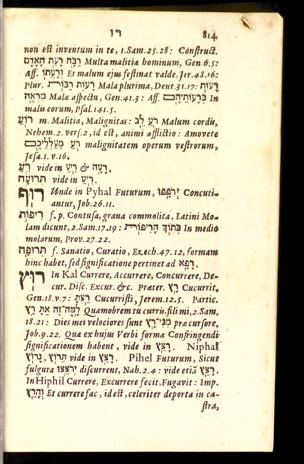 רו 814
non est inventum in te, 1. Sam. 25. 28: Construct.
רַבָּה רָעַת הָאָדָם Multa malitia hominum, Gen. 6. 5:
Aff. רָעָתוֹ Et malum ejus festinat valde. Jer. 48. 16:
Plur. רָעוֹת רַבּוֹת Mala plurima, Deut. 31. 17:
Malæ aspectu, Gen. 41. 3: Aff. בְּרָעוֹתֵיהֶם In
malis eorum, Psal. 141. 5.
רֹעַ m. Malitia, Malignitas: רֹעַ לֵב Malum cordis,
Nehem. 2. vers. 2, id est, animi afflictio: Amovete
רֹעַ מַעַלְלֵיכֶם malignitatem operum vestrorum,
Jesa. 1. v. 16.
vide in &
תרועה vide in
רוף Unde in Pyhal Futurum, Concuti-
antur, Job. 26. 11.
ריפות f. p. Contusa, grana commolita, Latini Mo-
lam dicunt, 2. Sam. 17. 19: בְּתוֹךְ הָרִיפוֹת In medio
molarum, Prov. 27. 22.
תרופה f. Sanatio, Curatio, Ezech. 47. 12, formam
hinc habet, sed significatione pertinet ad רפא
רוץ In Kal Currere, Accurrere, Concurrere, De-
cur. Disc. Excur. &c. Præter. רָץ Cucurrit,
Gen. 18. v. 7: Cucurristi, Jerem. 12. 5. Partic.
Quamobrem tu curris fili mi, 2. Sam.
18. 21: Dies mei velociores sunt præ cursore,
Job. 9. 25. Quæ ex hujus Verbi forma Confringendi
significationem habent, vide in רצץ Niphal
vide in רצץ Pihel Futurum, Sicut
fulgura discurrent, Nah. 2. 4: vide etiā רצץ
In Hiphil Currere, Excurrere fecit, Fugavit: Imp.
Et currere fac, id est, celeriter deporta in ca-
stra,